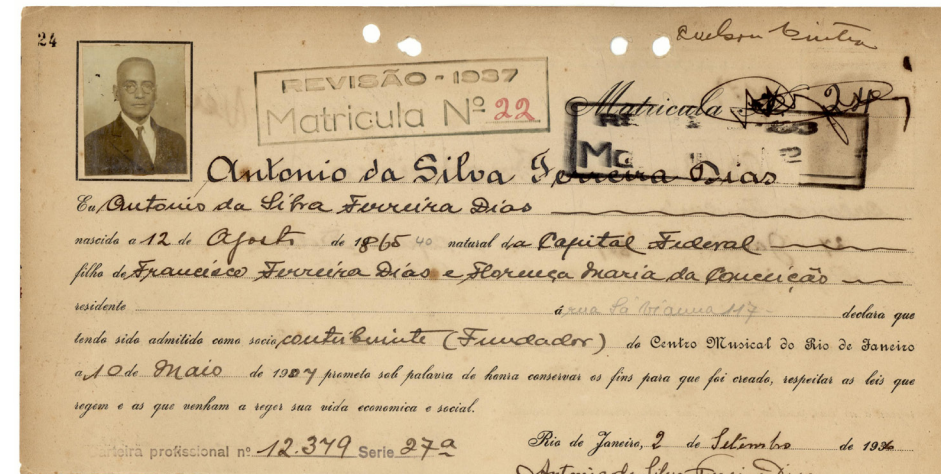 24
REVISÃO - 1937
Matricula Nº 22
Matricula
Antonio da Silva Ferreira Dias
Eu, Antonio da Silva Ferreira Dias
nascido a 12 de Agosto de 1865 natural da Capital Federal
filho de Francisco Ferreira Dias e Florença Maria da Conceição
residente á rua Sá Vianna 117 declara que
tendo sido admitido como socio contribuinte (Fundador) do Centro Musical do Rio de Janeiro
a 10 de Maio de 1907 prometo sob palavra de honra conservar os fins para que foi creado, respeitar as leis que
regem e as que venham a reger sua vida economica e social.
Carteira profissional nº 12.379 Serie 27ª
Rio de Janeiro, 2 de Setembro de 1936